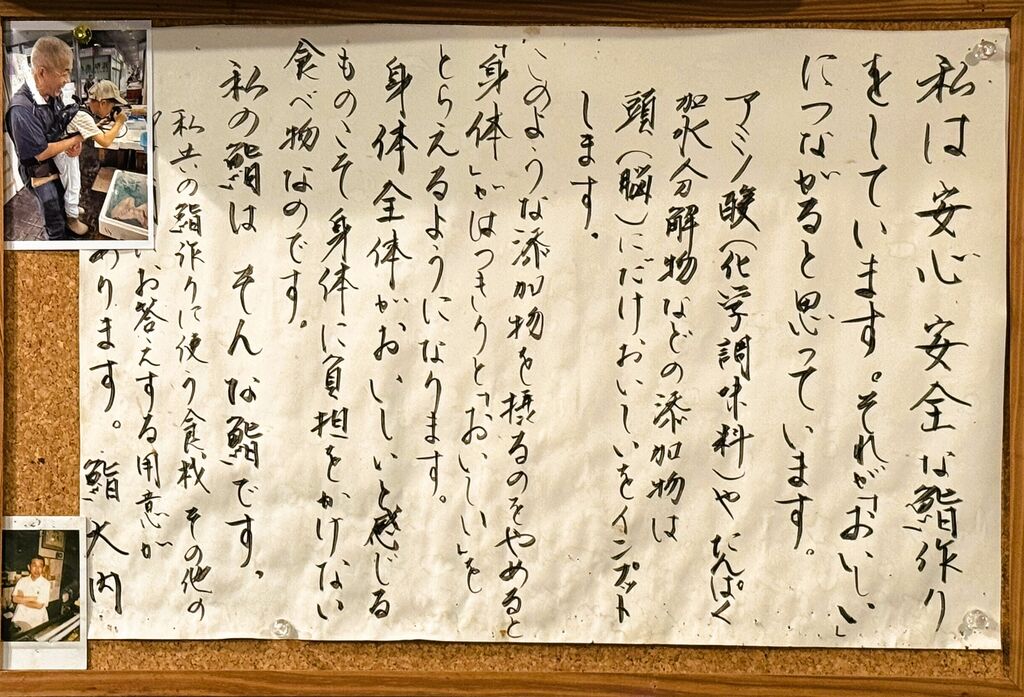 私は安心 安全な鮨作り
をしています。それが「おいしい」
につながると思っています。
アミノ酸(化学調味料)や たんぱく
加水分解物などの添加物は
頭(脳)にだけ、おいしいをインプット
します。
このような添加物を摂るのをやめると
「身体」がはっきりと「おいしい」を
とらえるようになります。
身体全体がおいしいと感じる
ものこそ身体に負担をかけない
食べ物なのです。
私の鮨は そんな鮨です。
私共の鮨作りに使う食材 その他の
お答えする用意が
あります。 鮨 大内